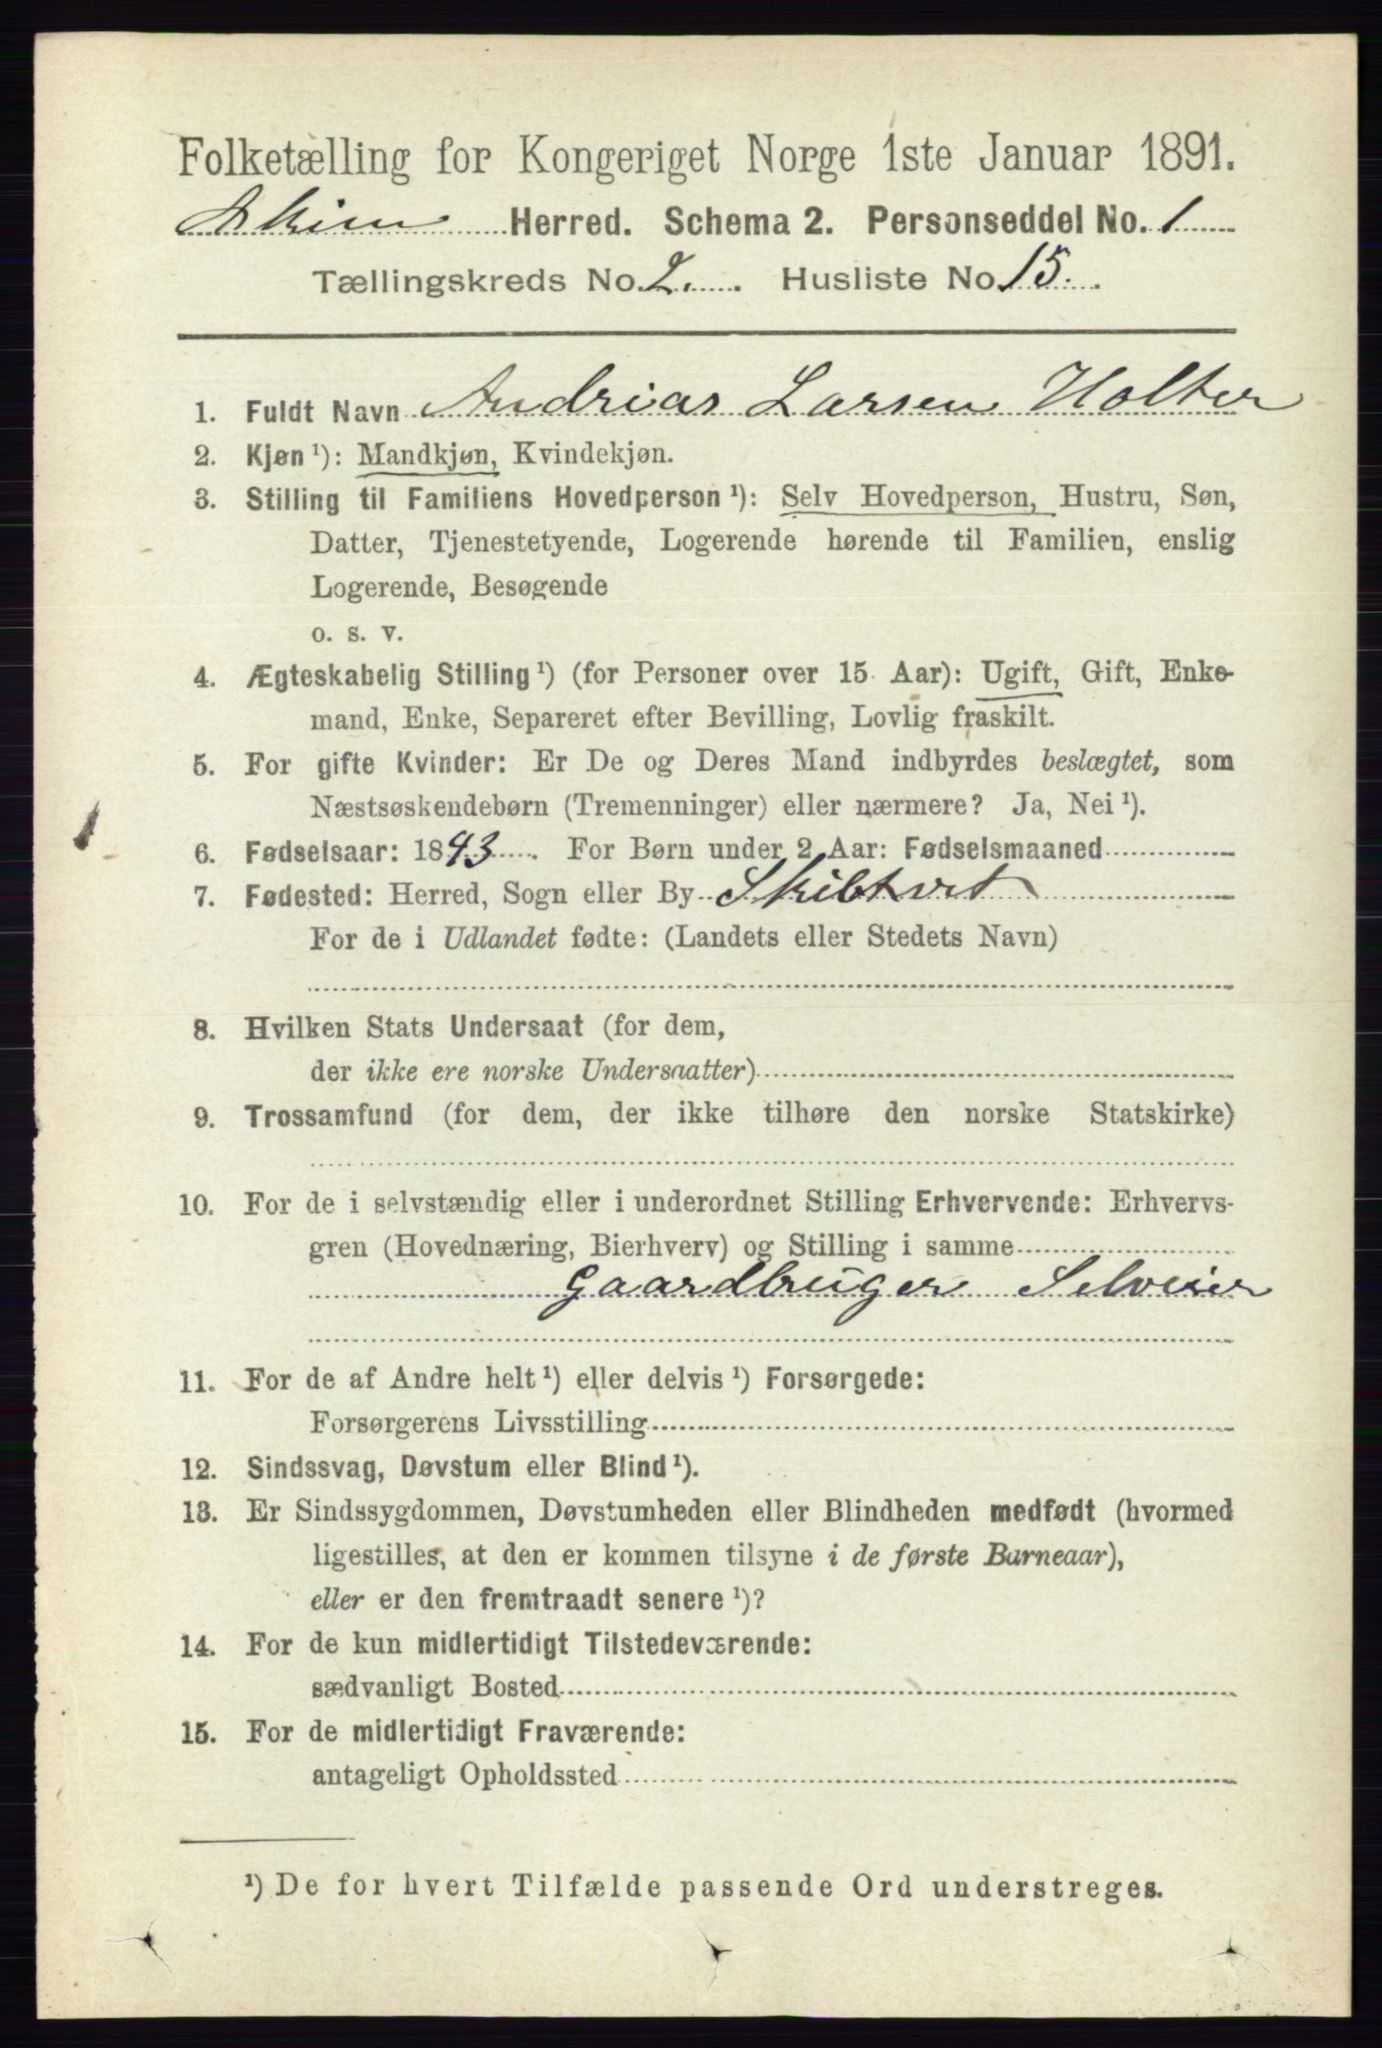 Folketælling for Kongeriget Norge 1ste Januar 1891.
Askim Herred. Schema 2. Personseddel No. 1
Tællingskreds No. 2. Husliste No. 15.
1. Fuldt Navn Andrias Larsen Holter
2. Kjøn ¹): Mandkjøn, Kvindekjøn.
3. Stilling til Familiens Hovedperson ¹): Selv Hovedperson, Hustru, Søn,
Datter, Tjenestetyende, Logerende hørende til Familien, enslig
Logerende, Besøgende
o. s. v.
4. Ægteskabelig Stilling ¹) (for Personer over 15 Aar): Ugift, Gift, Enke-
mand, Enke, Separeret efter Bevilling, Lovlig fraskilt.
5. For gifte Kvinder: Er De og Deres Mand indbyrdes beslægtet, som
Næstsøskendebørn (Tremenninger) eller nærmere? Ja, Nei ¹).
6. Fødselsaar: 1843. For Børn under 2 Aar: Fødselsmaaned
7. Fødested: Herred, Sogn eller By Skibtvet
For de i Udlandet fødte: (Landets eller Stedets Navn)
8. Hvilken Stats Undersaat (for dem,
der ikke ere norske Undersaatter)
9. Trossamfund (for dem, der ikke tilhøre den norske Statskirke)
10. For de i selvstændig eller i underordnet Stilling Erhvervende: Erhvervs-
gren (Hovednæring, Bierhverv) og Stilling i samme
Gaardbruger Selveier
11. For de af Andre helt ¹) eller delvis ¹) Forsørgede:
Forsørgerens Livsstilling
12. Sindssvag, Døvstum eller Blind ¹).
13. Er Sindssygdommen, Døvstumheden eller Blindheden medfødt (hvormed
ligestilles, at den er kommen tilsyne i de første Barneaar),
eller er den fremtraadt senere ¹)?
14. For de kun midlertidigt Tilstedeværende:
sædvanligt Bosted
15. For de midlertidigt Fraværende:
antageligt Opholdssted
¹) De for hvert Tilfælde passende Ord understreges.